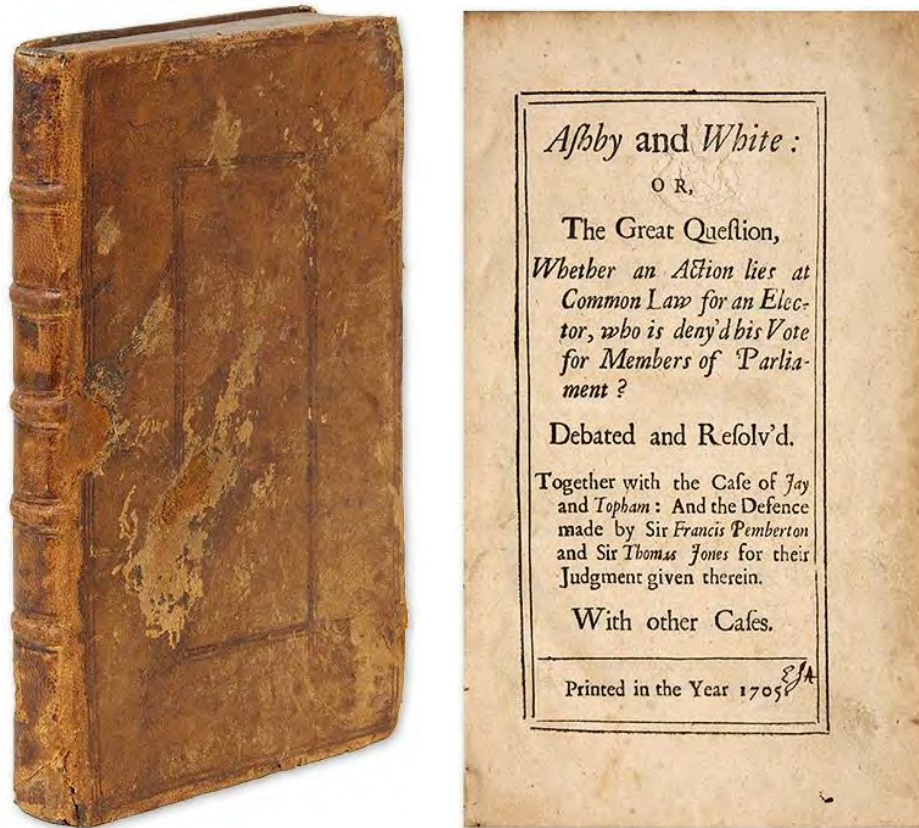 Aſhby and White :
OR,
The Great Queſtion,
Whether an Action lies at
Common Law for an Elec-
tor, who is deny'd his Vote
for Members of Parlia-
ment ?
Debated and Reſolv'd.
Together with the Caſe of Jay
and Topham : And the Defence
made by Sir Francis Pemberton
and Sir Thomas Jones for their
Judgment given therein.
With other Caſes.
Printed in the Year 1705